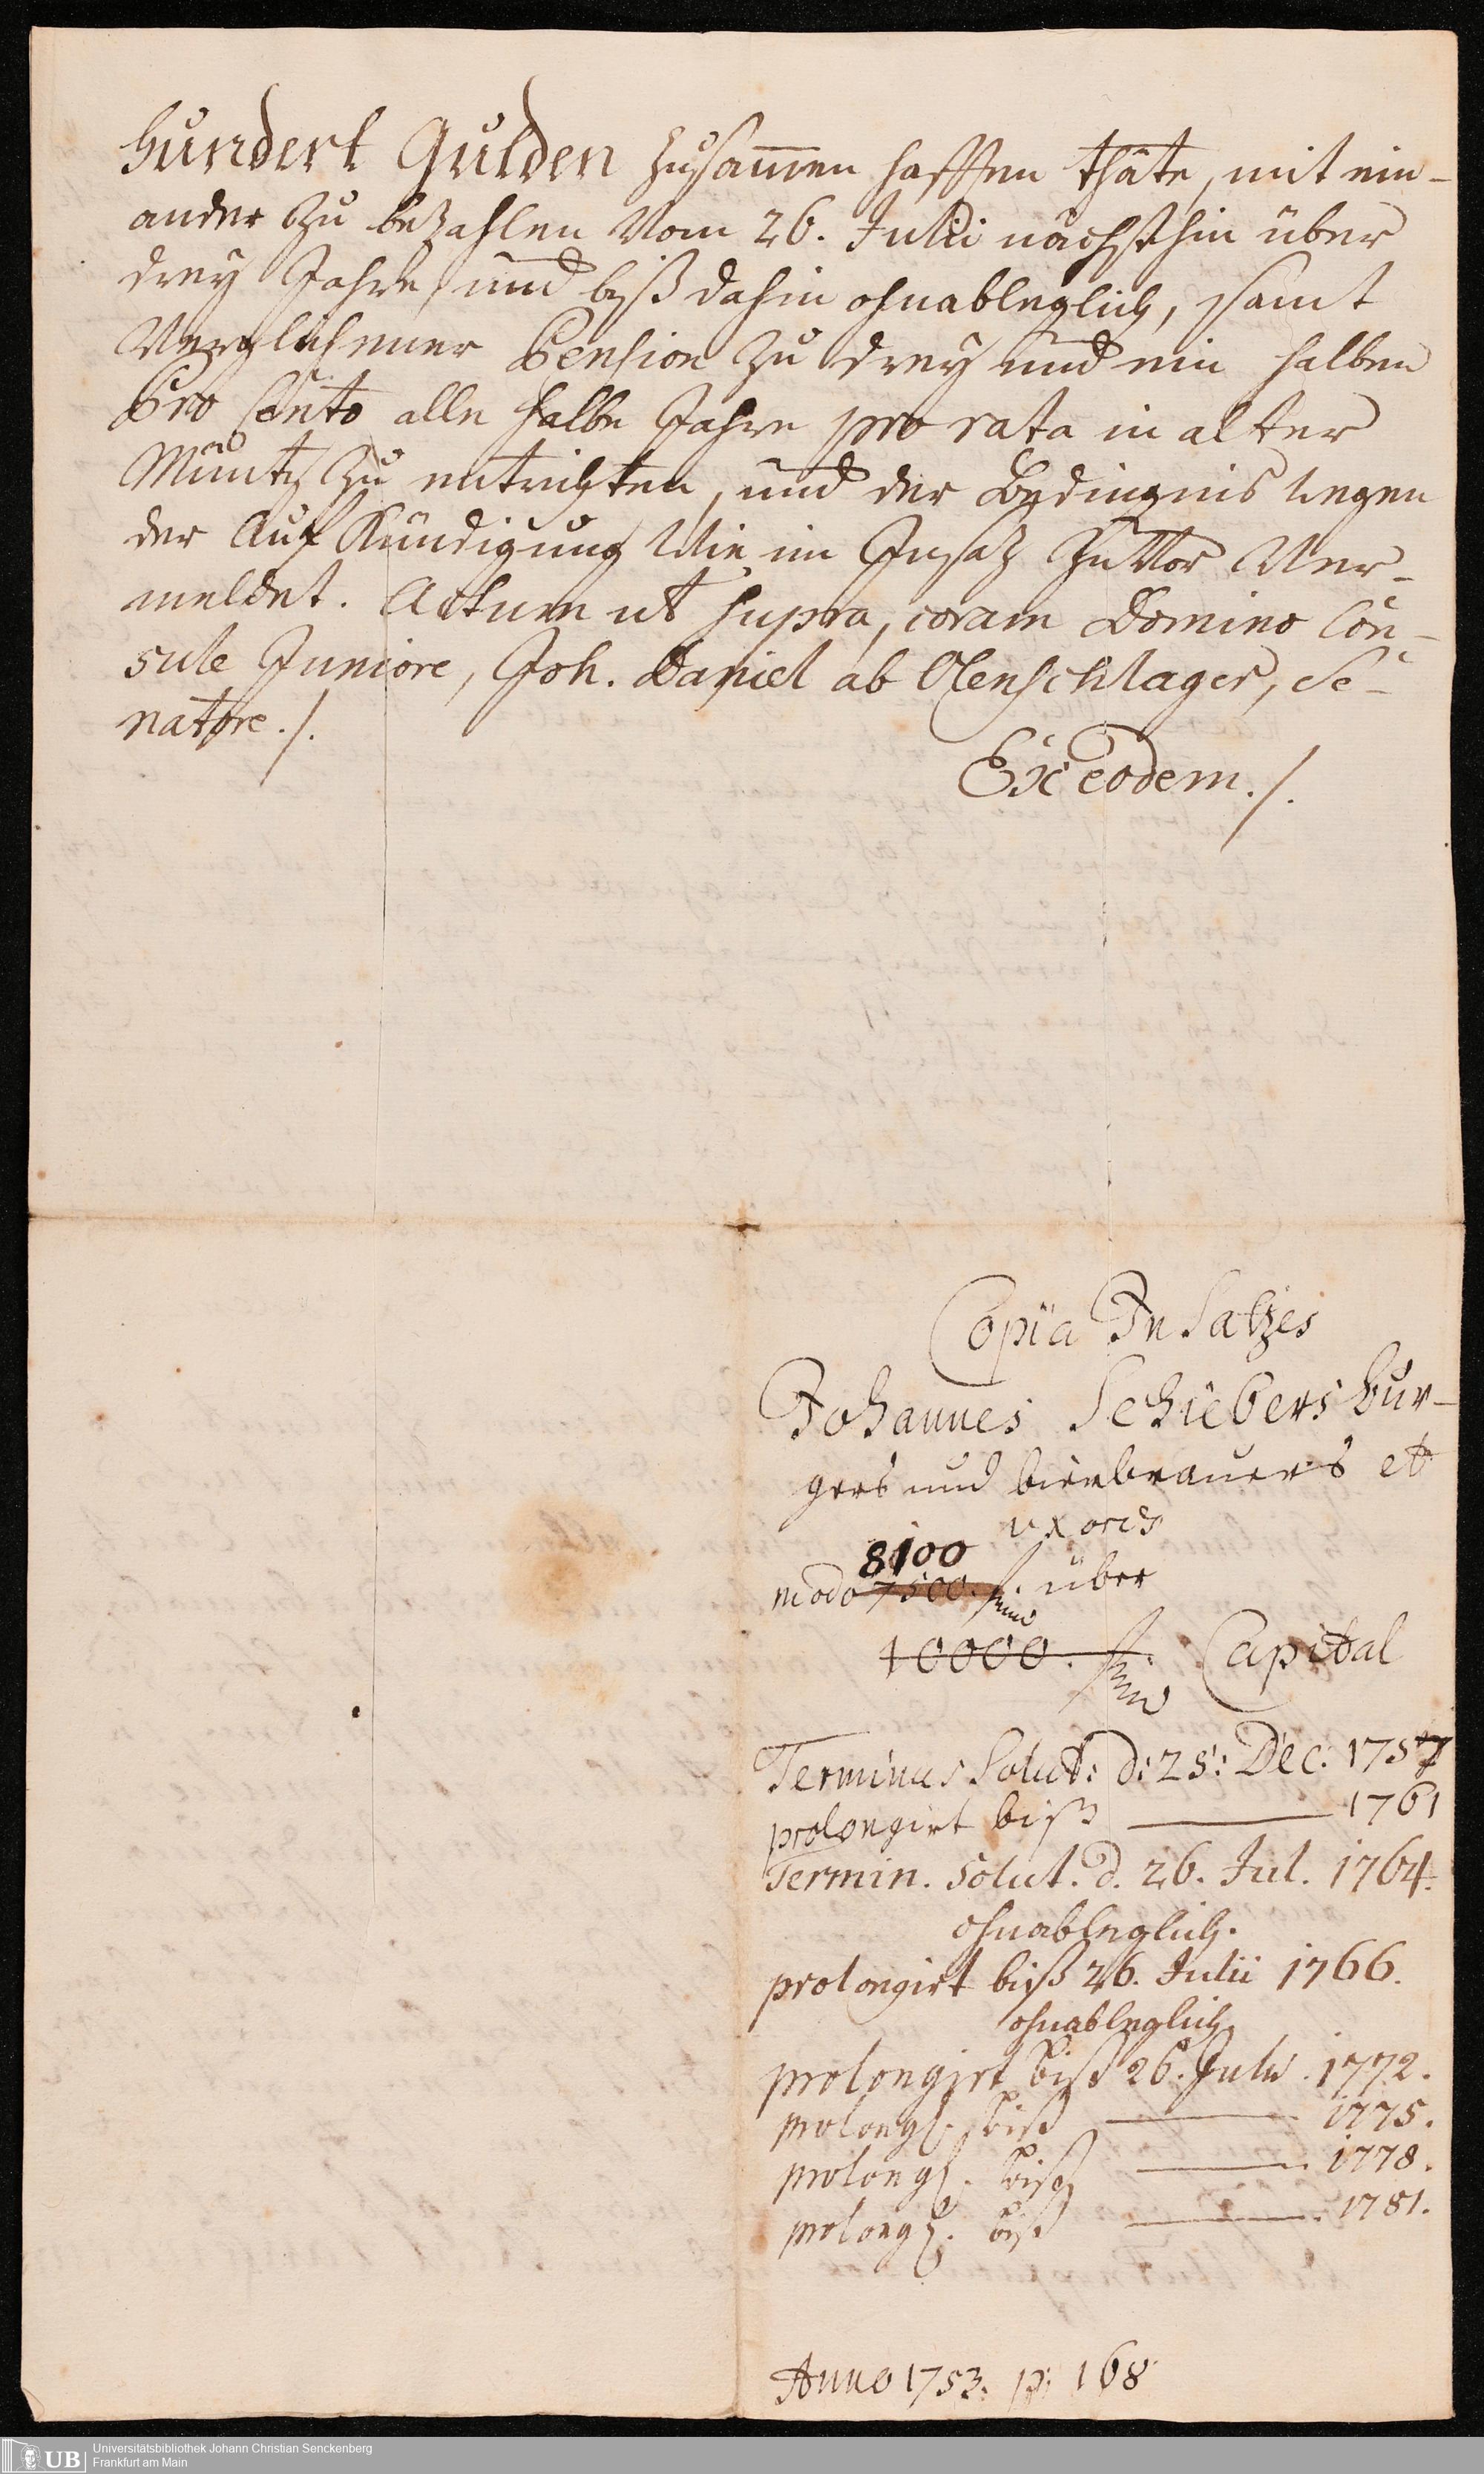 hundert Gulden zusam̄en hafften thäte, mit ein-
ander zu bezahlen Vom 26. Julii nächsthin über
drey Jahre, und biß dahin ohnableglich, samt
Verglichener Pension zu drey und ein halben
Pro Cento alle halbe Jahre pro rata in alter
Müntz zu entrichten, und der Bedingnis wegen
der Auf Kündigung Wie im Insatz zuVor Ver-
meldet. Actum ut supra, coram Domino Con-
sule Juniore, Joh. Daniel ab Olenschlager, Se-
natore ./.
Ex eodem ./.
Copia InSatzes
Johannes Schiebers bur-
gers und bierbrauers et
uxoris
8100
modo 7500. f. über
10000. f. Capital
Terminus Solut: d: 25: Dec: 1757
prolongirt biß ——— 1761
Termin. solut. d. 26. Jul. 1764.
ohnableglich.
prolongirt biß 26. Julii 1766.
ohnableglich.
prolongirt biß 26. Julii . 1772.
prolong. biß ——— 1775.
prolong. biß ——— . 1778.
prolong. biß ——— . 1781.
Anno 1753. p: 168
UB Universitätsbibliothek Johann Christian Senckenberg
Frankfurt am Main